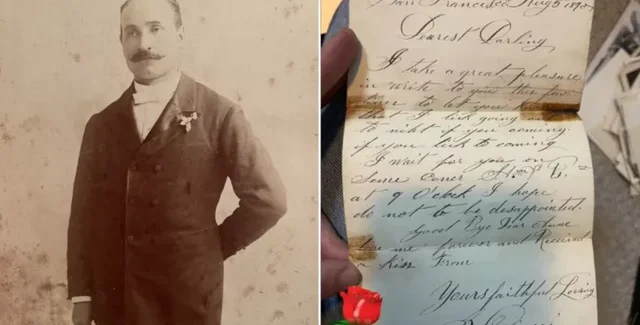 San Francisco Aug 5 1890
Dearest Darling
I take a great pleasure
in write to you this few
to let you
that I lick going
to night if you coming.
if you lick to coming
I wait for you on
Some Coner
at 9 O'clock I hope
do not to be desappointed.
good Bye Dear
me forever and Received
a Kiss From
Yours faithful Loving